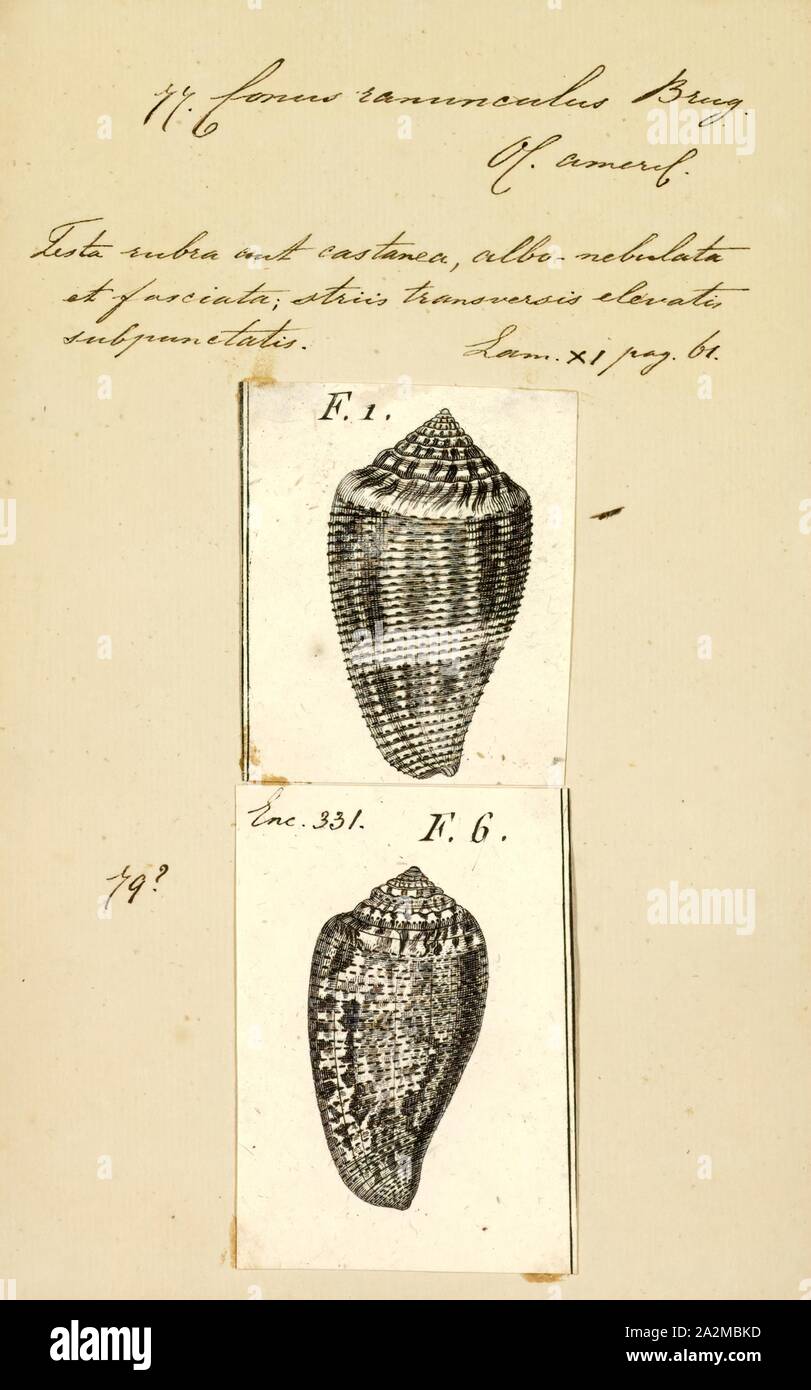 77. Conus ranunculus Brug.
Oc. americ.
Testa rubra aut castanea, albo-nebulata
et fasciata; striis transversis elevatis
subpunctatis. Lam. XI pag. 61.
F. 1.
Enc. 331. F. 6.
79?
alamy
alamy
alamy
a
a
a
a
a
alamy
Image ID: A2MBKD
www.alamy.com